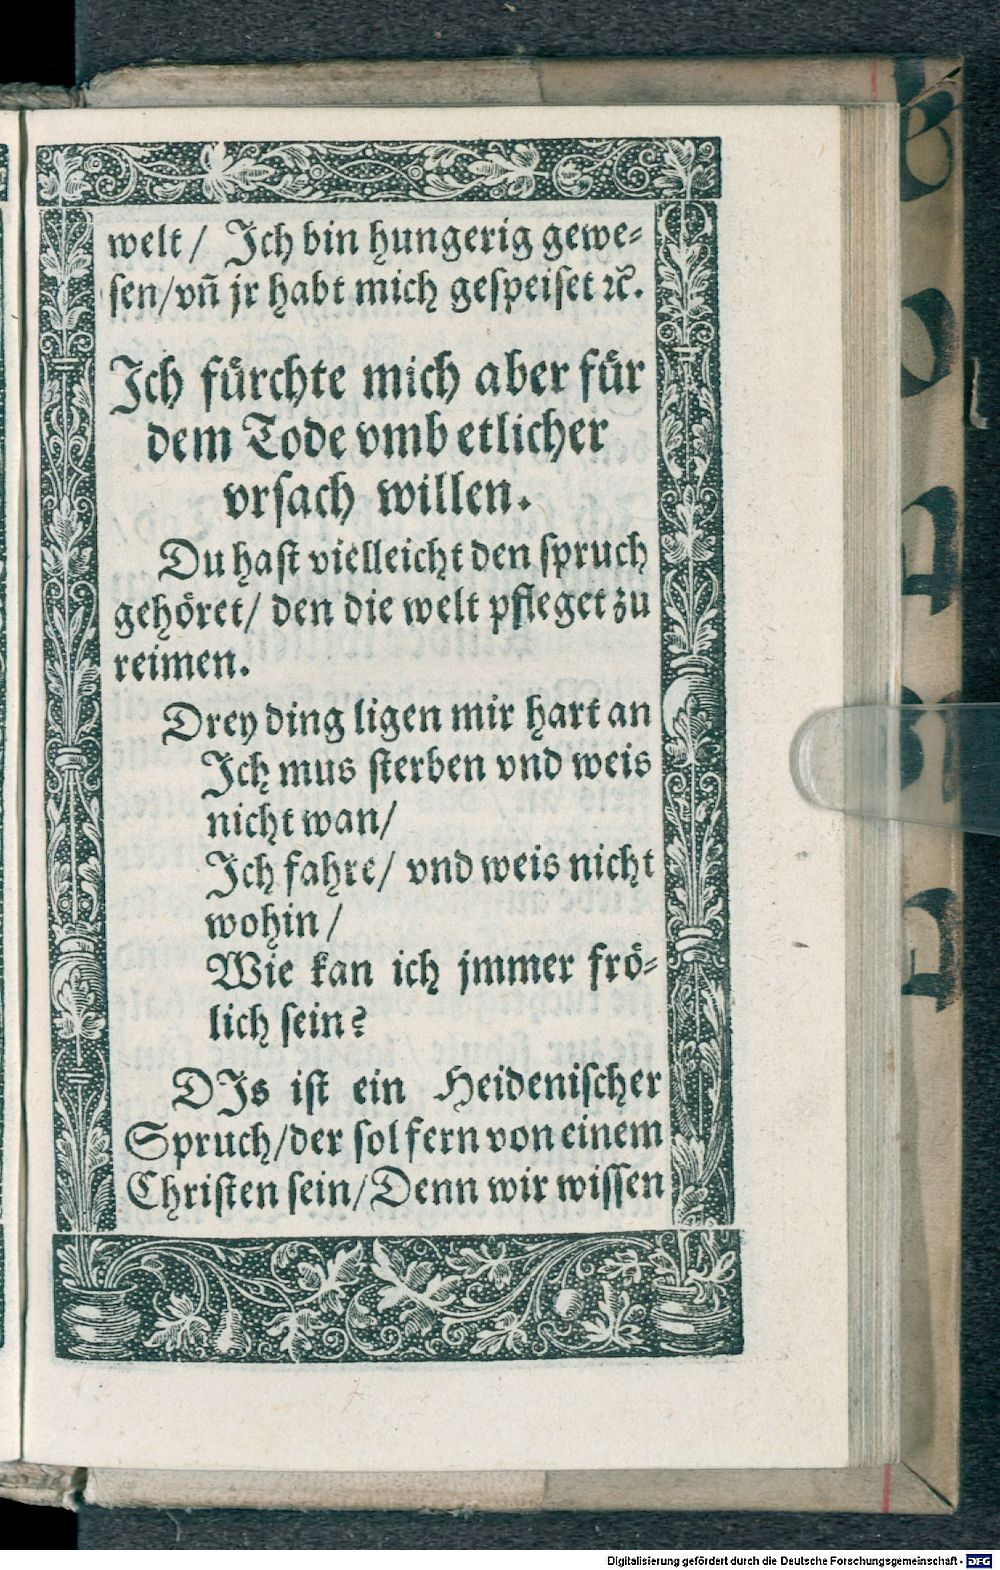 welt / Ich bin hungerig gewe⸗
sen/vñ jr habt mich gespeiset ꝛc.
Ich fürchte mich aber für
dem Tode vmb etlicher
vrsach willen.
Du hast vielleicht den spruch
gehöret/ den die welt pfleget zu
reimen.
Drey ding ligen mir hart an
Ich mus sterben vnd weis
nicht wan/
Ich fahre/ vnd weis nicht
wohin /
Wie kan ich jmmer frö⸗
lich sein?
DIs ist ein Heidenischer
Spruch/der sol fern von einem
Christen sein/Denn wir wissen
Digitalisierung gefördert durch die Deutsche Forschungsgemeinschaft - DFG